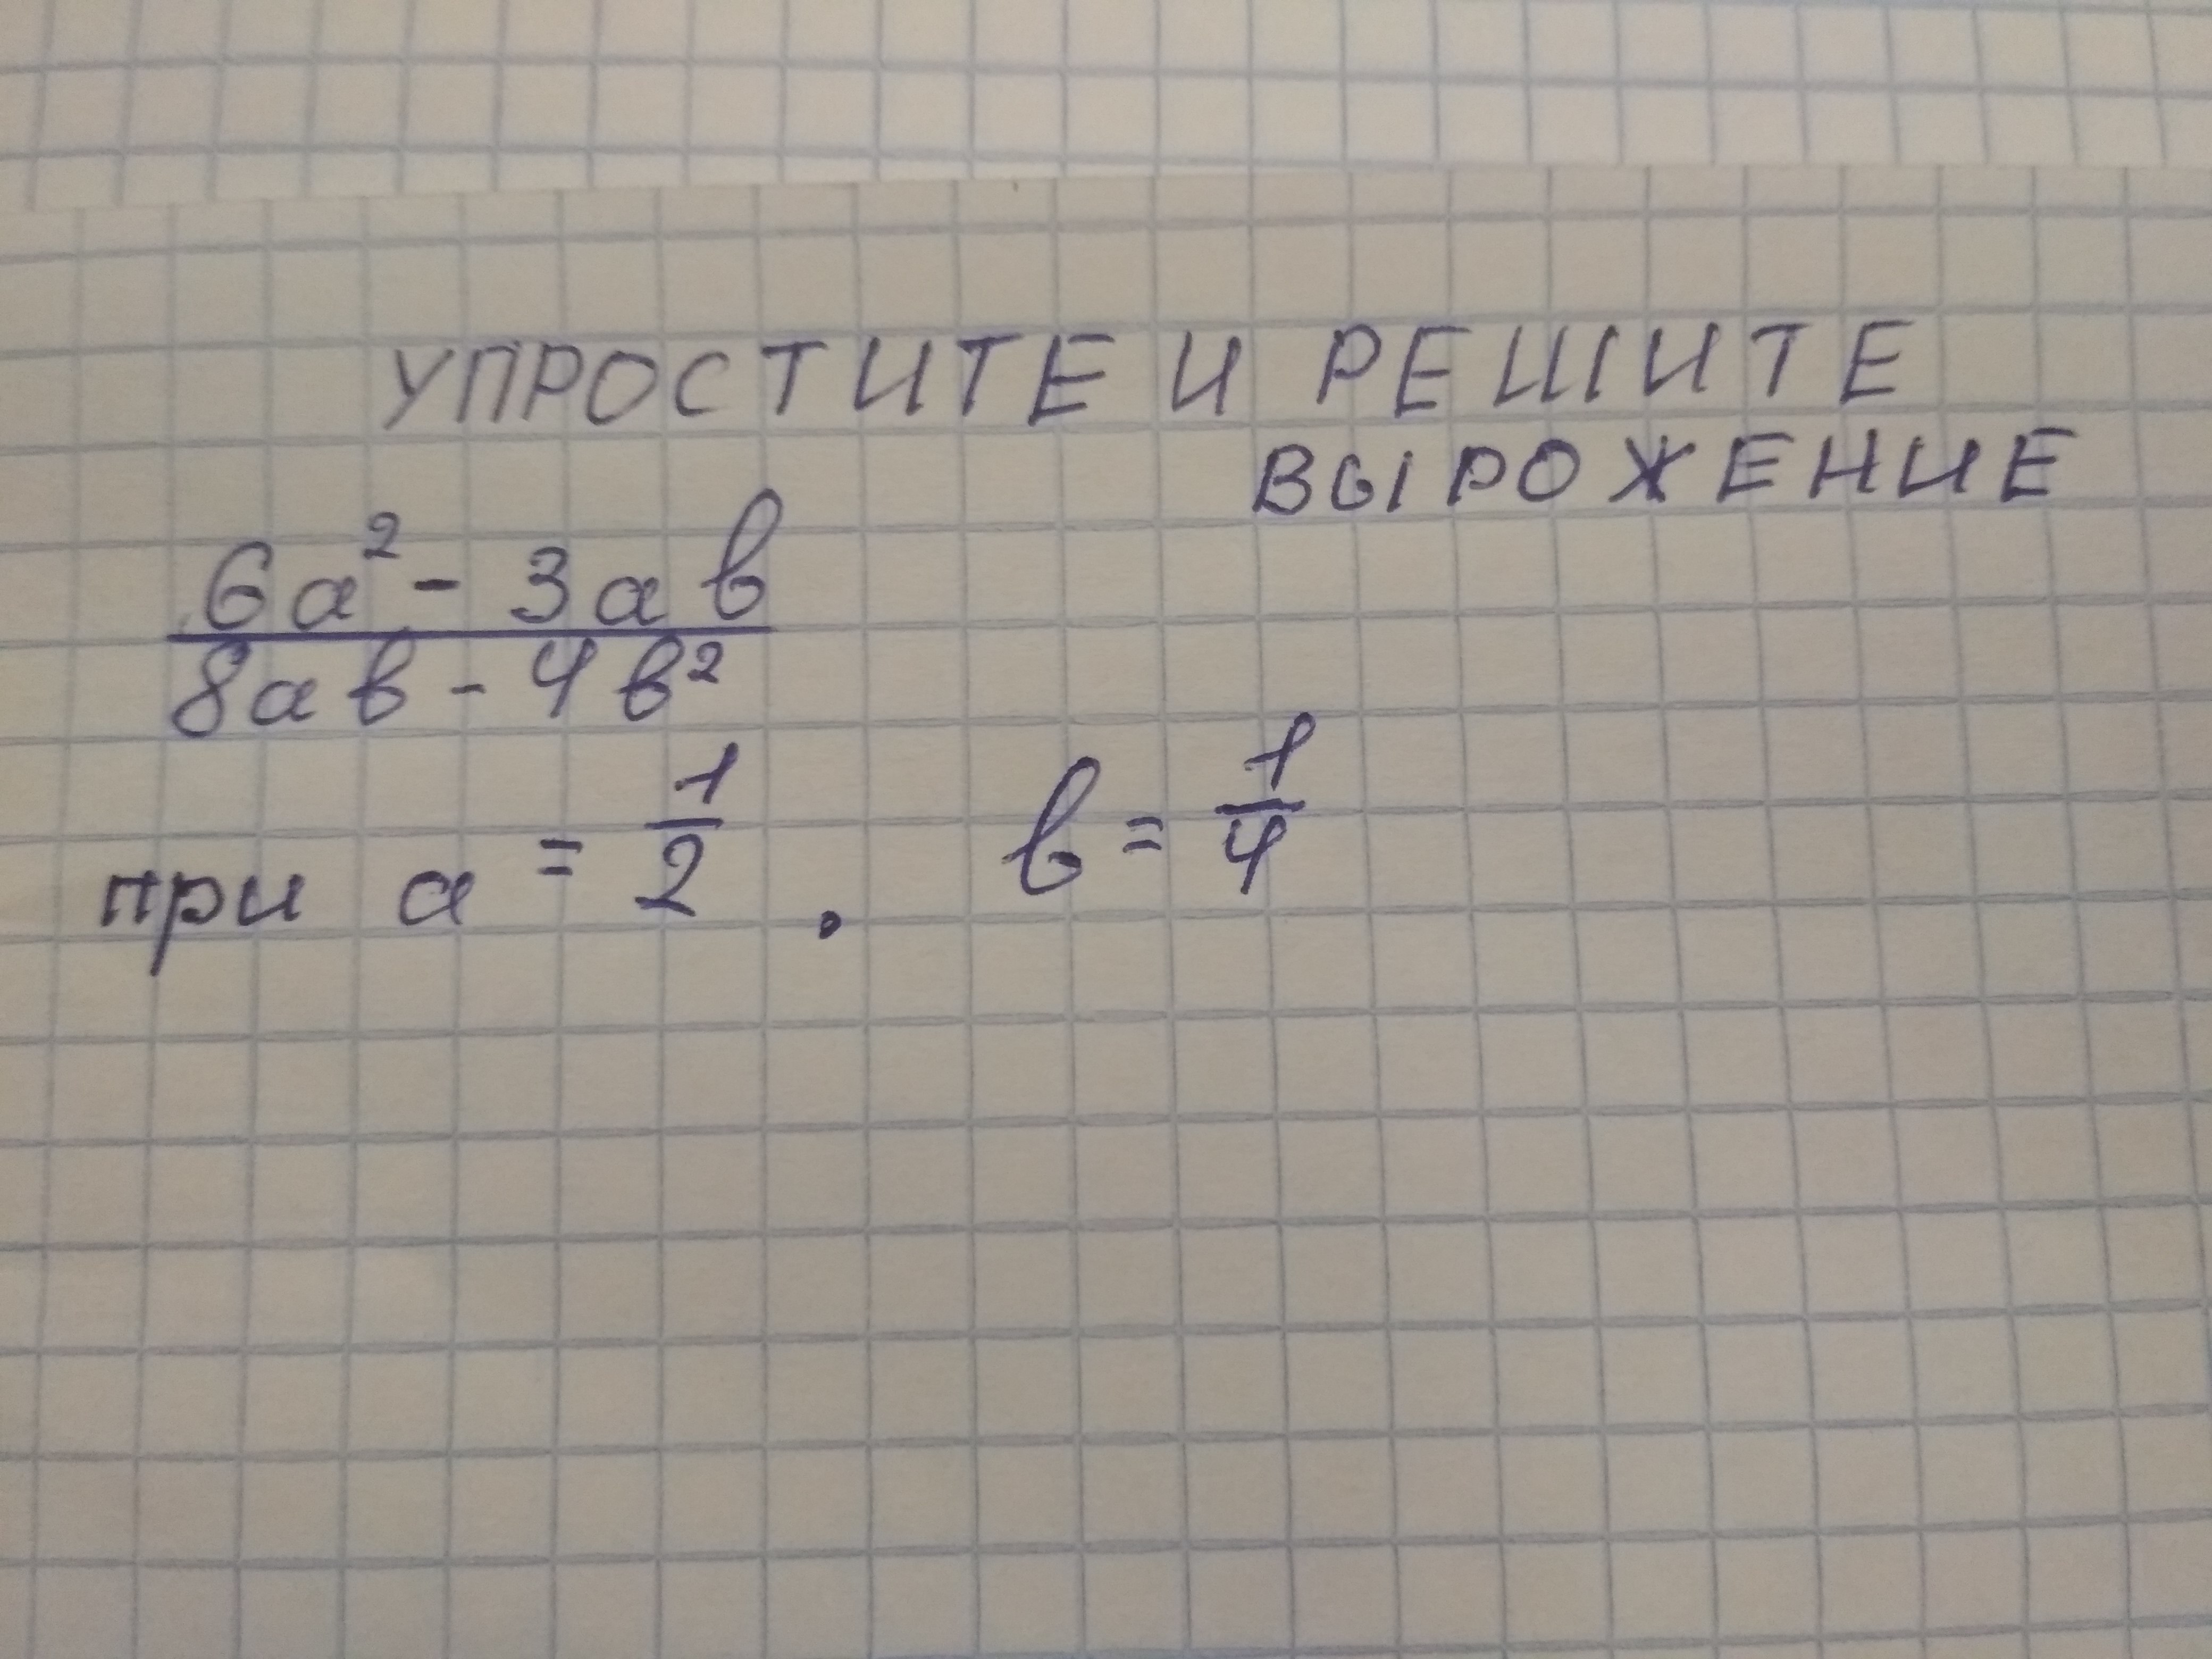 УПРОСТИТЕ И РЕШИТЕ
ВЫРОЖЕНИЕ
6a² - 3ab
8ab - 4b²
при a = 1/2 , b = 1/4